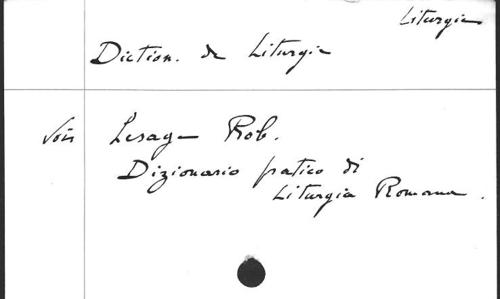 Liturgie
Diction. de Liturgie
Voir Lesage Rob.
Dizionario pratico di
Liturgia Romana.